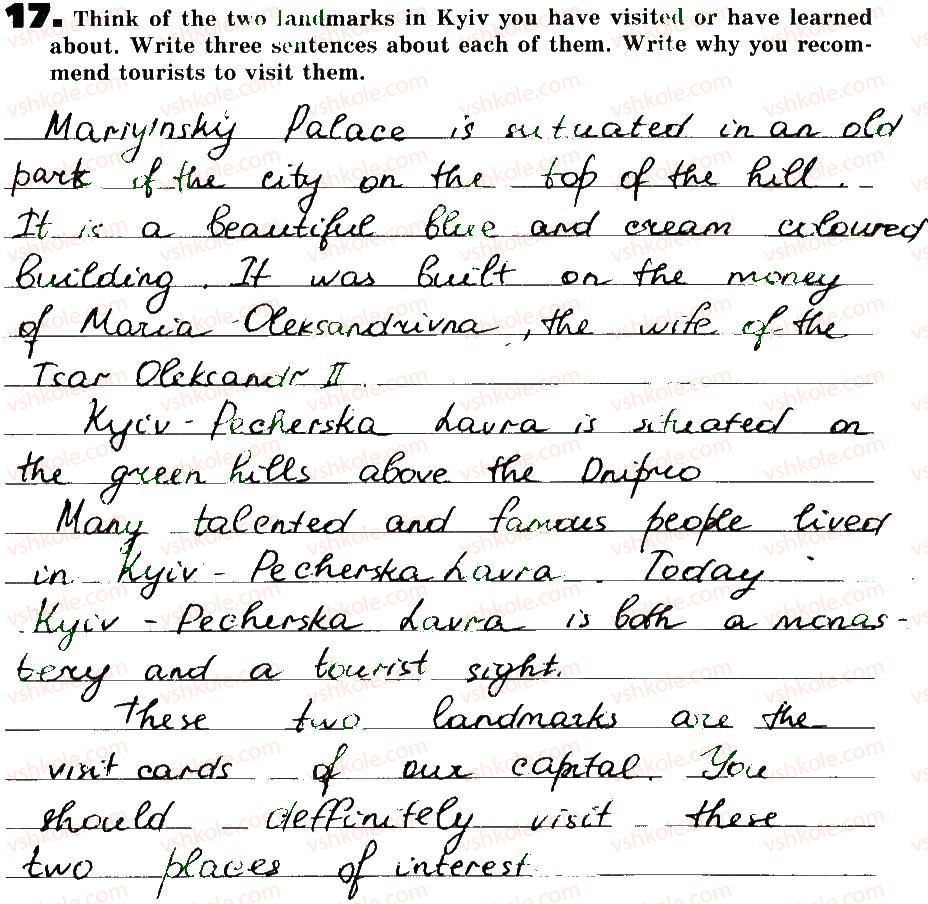 17. Think of the two landmarks in Kyiv you have visited or have learned
about. Write three sentences about each of them. Write why you recom-
mend tourists to visit them.
Mariyinskiy Palace is sutuated in an old
park of the city on the top of the hill.
It is a beautiful blue and cream coloured
building. It was built on the money
of Maria Oleksandrivna, the wife of the
Tsar Oleksandr II.
Kyiv-Pecherska Lavra is situated on
the green hills above the Dnipro
Many talented and famous people lived
in Kyiv-Pecherska Lavra. Today
Kyiv-Pecherska Lavra is both a monas-
tery and a tourist sight.
These two landmarks are the
visit cards of our capital. You
should deffinitely visit these
two places of interest
vshkole.com